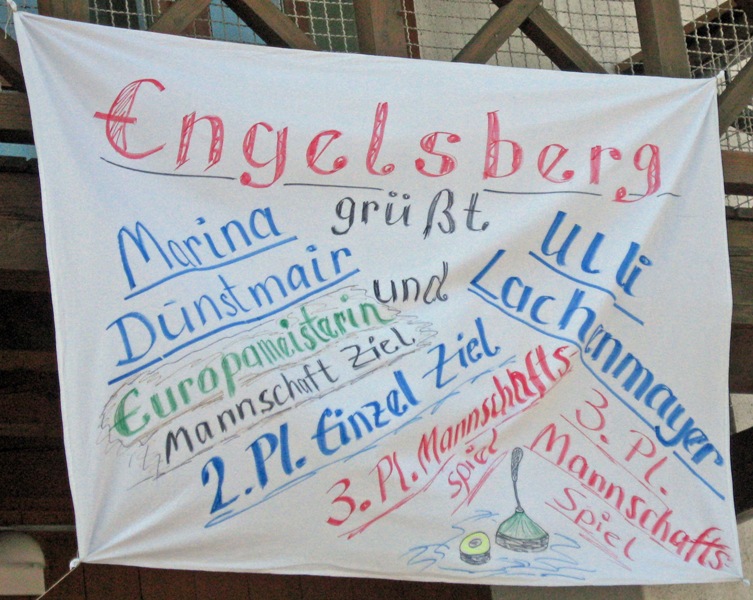 Engelsberg
grüßt
Marina
Dünstmair
Europameisterin
Mannschaft Ziel
2. Pl. Einzel Ziel
3. Pl. Mannschafts
Spiel
und
Ulli
Lachenmayer
3. Pl.
Mannschafts
Spiel